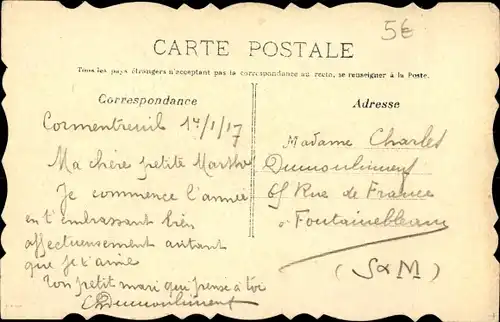 5€
CARTE POSTALE
Tous les pays étrangers n'acceptant pas la correspondance au recto, se renseigner à la Poste.
Correspondance
Cormentreuil 17/1/17
Ma chère petite Marthe
Je commence l'année
en t'embrassant bien
affectueusement autant
que je t'aime
Ton petit mari qui pense à toi
Adresse
Madame Charles
65 Rue de France
à Fontainebleau
(S & M)